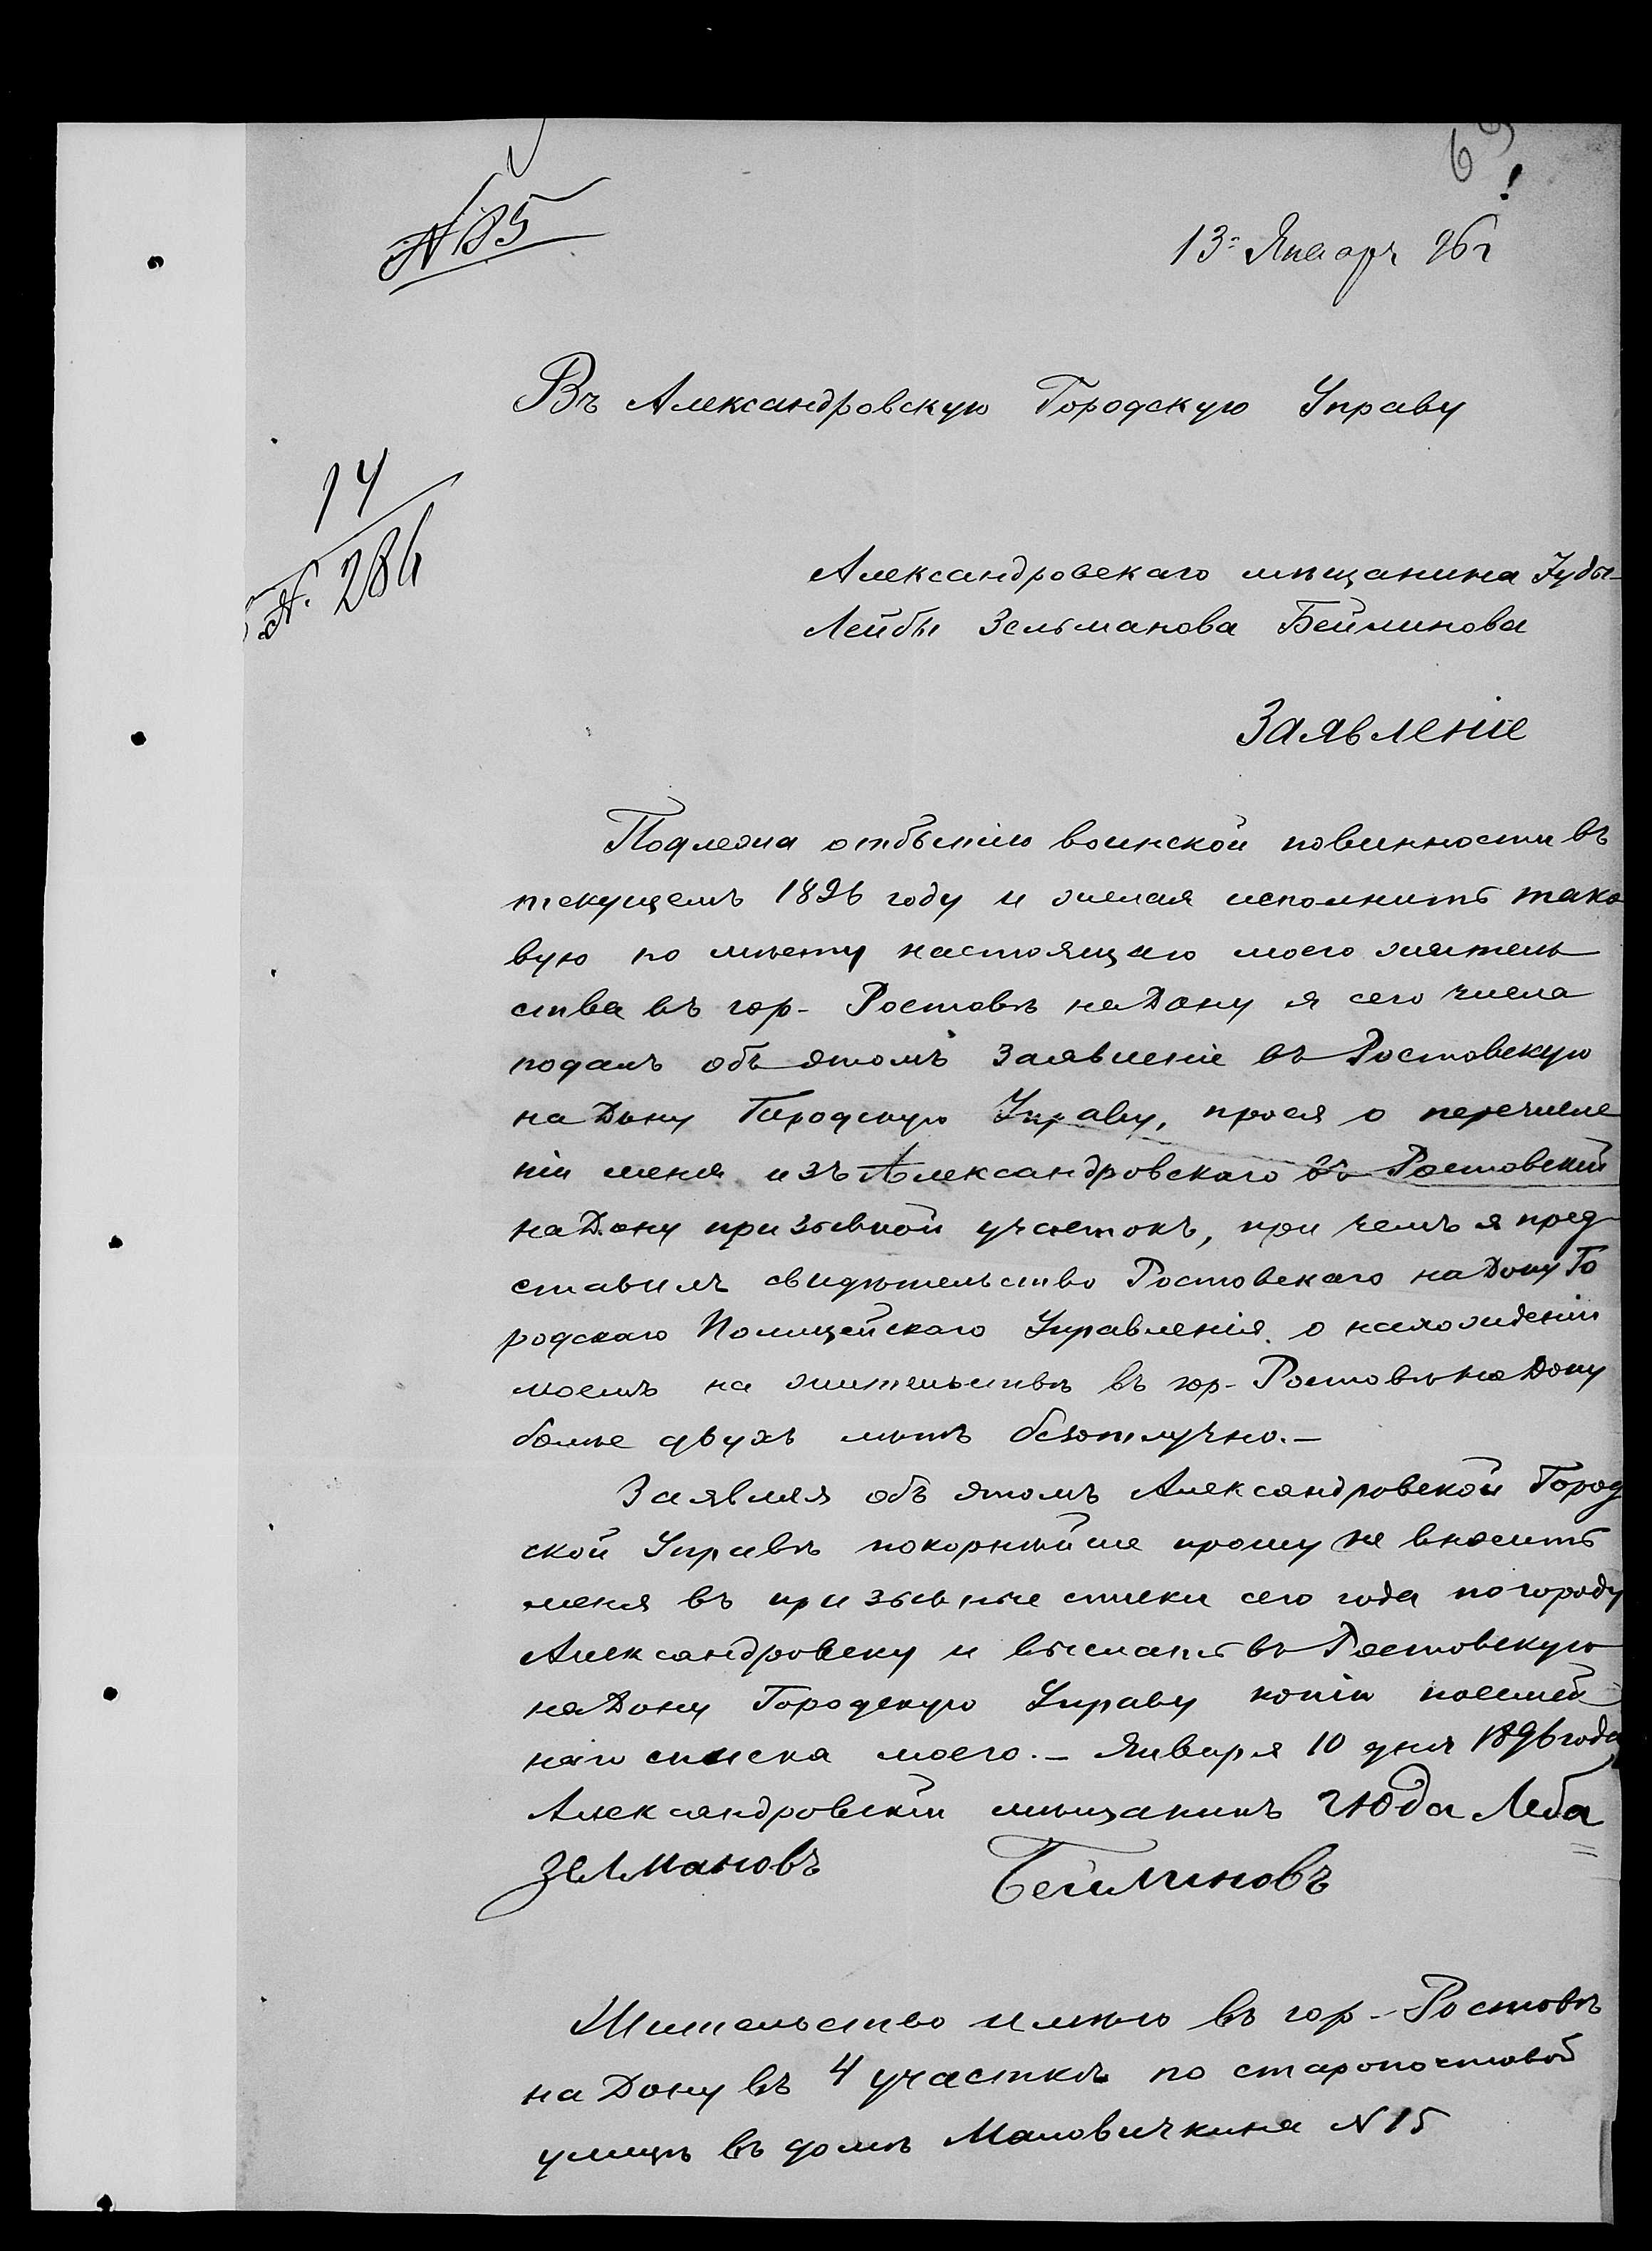 69
№ 85
13го Январ 96 г
Въ Александровскую Городскую Управу
14
№. 284
Александровскаго мѣщанина Іуды-
Лейбы Зельманова Бейлинова
Заявленіе
Подлежа отбытію воинской повинности въ
текущемъ 1896 году и желая исполнить тако
вую по мѣсту настоящаго моего житель
ства въ гор- Ростовѣ на Дону я сего числа
подалъ объ этомъ заявленіе въ Ростовскую
на Дону Городскую Управу, прося о перечисле
ніи меня изъ Александровскаго въ Ростовскій
на Дону призывной участокъ, при чемъ я пред-
ставилъ свидѣтельство Ростовскаго на Дону Го
родскаго Полицейскаго Управленія о нахожденіи
моемъ на жительствѣ въ гор- Ростовѣ на Дону
болѣе двухъ лѣтъ безотлучно.-
Заявляя объ этомъ Александровской Город
ской Управѣ покорнѣйше прошу не вносить
меня въ призывные списки сего года по городу
Александровску и выслать въ Ростовскую
на Дону Городскую Управу копію посемей
наго списка моего.- Января 10 дня 1896 года
Александровскій мѣщанинъ Июда Леба
Зелмановъ Бейлиновъ
Жительство имѣю въ гор- Ростовѣ
на Дону въ 4 участкѣ по старопочтовой
улицѣ въ домѣ Маловичкина № 15